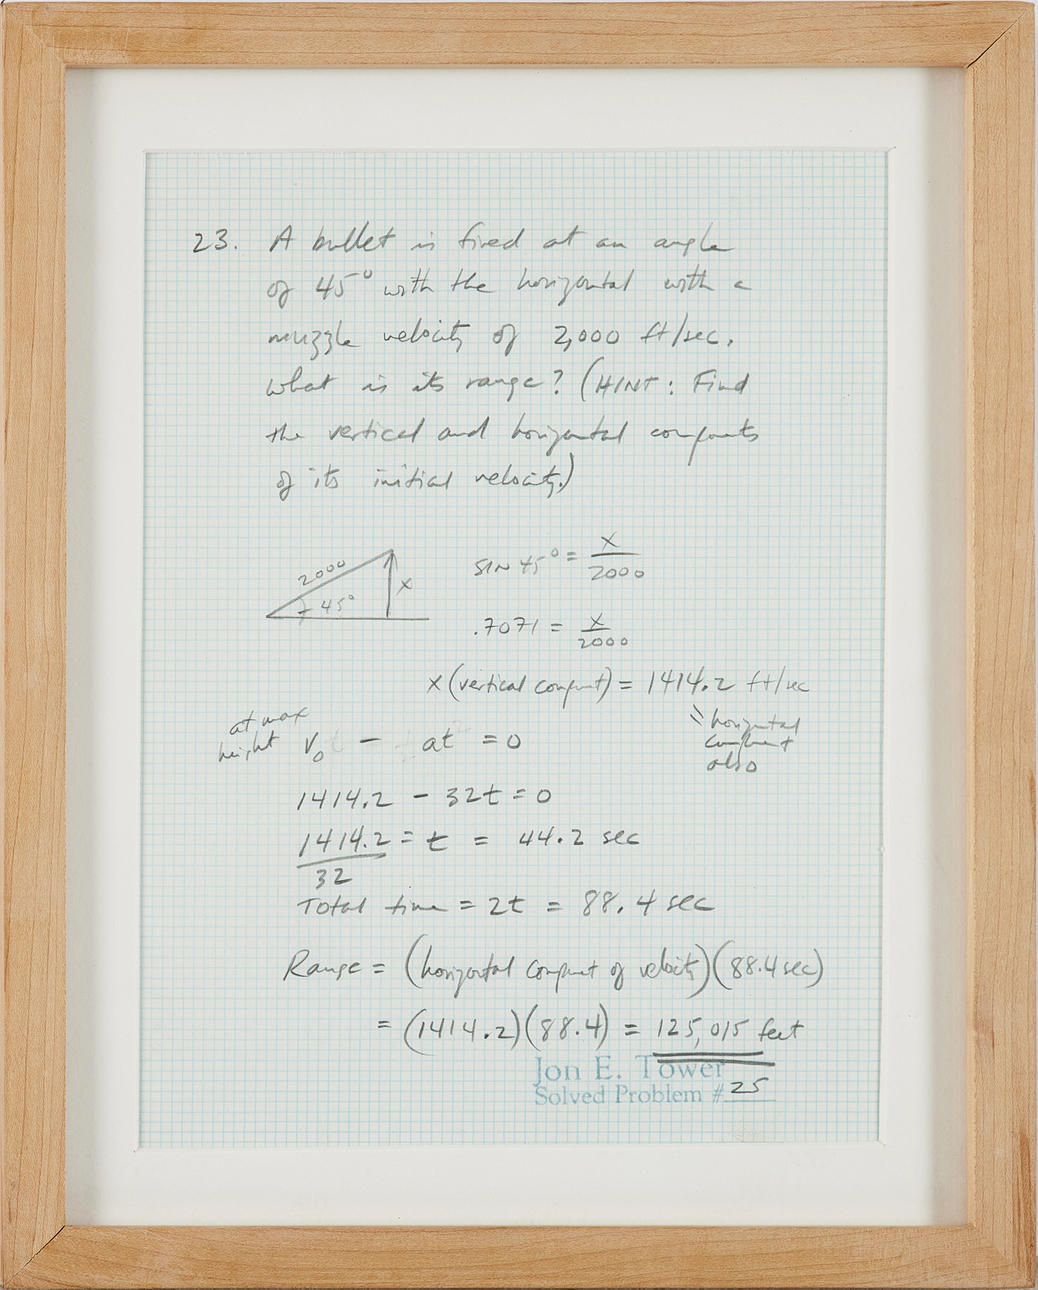 23. A bullet is fired at an angle
of 45° with the horizontal with a
muzzle velocity of 2,000 ft/sec.
What is its range? (HINT: Find
the vertical and horizontal components
of its initial velocity.)
2000
45°
x
SIN 45° = x/2000
.7071 = x/2000
x (vertical component) = 1414.2 ft/sec
= horizontal
component
also
at max
height
V₀ - at = 0
1414.2 - 32t = 0
1414.2/32 = t = 44.2 sec
Total time = 2t = 88.4 sec
Range = (horizontal component of velocity)(88.4 sec)
= (1414.2)(88.4) = 125,015 feet
Jon E. Tower
Solved Problem # 25